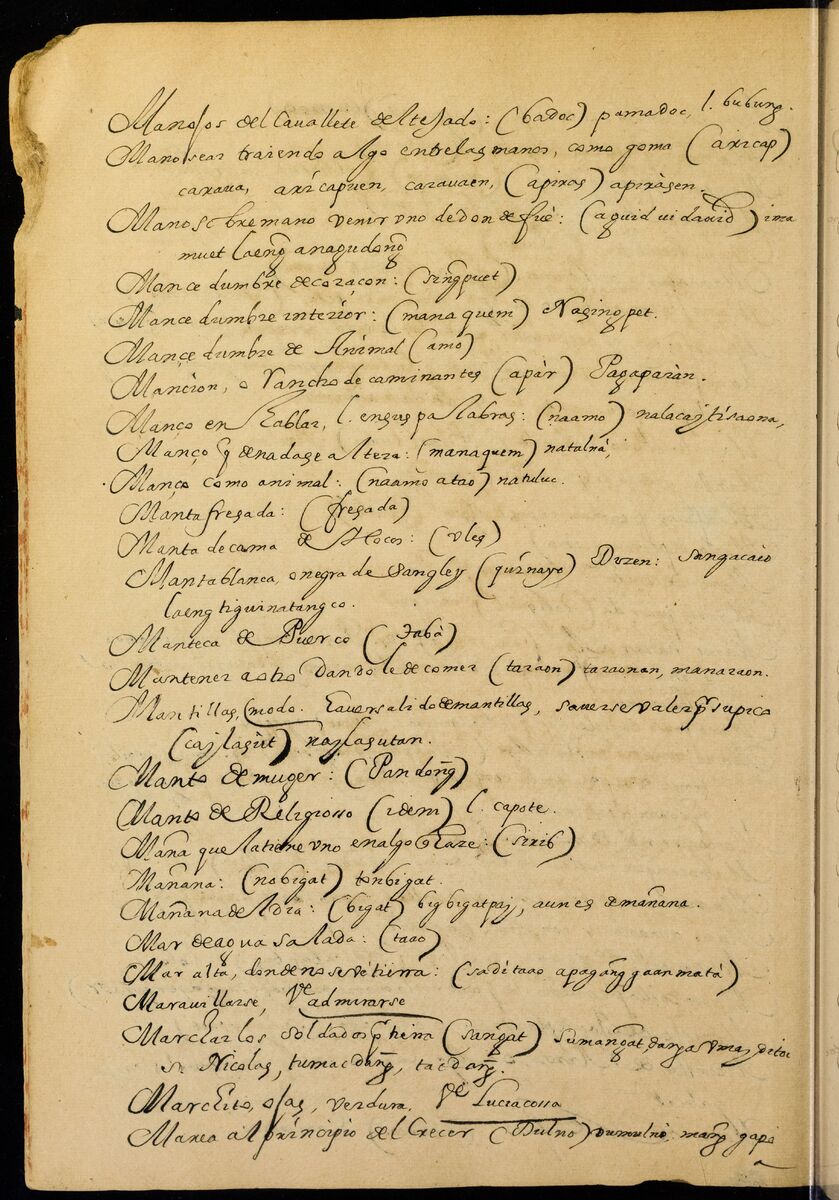 Manojos del Cavallete del tejado: (badoc) pamadoc, l. bubung.
Manosear traiendo algo entrelas manos, como goma (aricap)
carava, aricapuen, caravaen, (apiras) apiràsen.
Mano sobremano venir uno dedonde fuè: (aguid uidavid) ima
muet laeng̃ anagudong̃
Mançedumbre decoraçon: (sing̃puet)
Mançedumbre interior: (manaquem) Nasingpet.
Mançedumbre de Animal (amo)
Mançion, o Rancho de caminantes (apàr) Pagaparàn.
Manço en hablar, l. ensus palabras: (naamo) nalacaytisaona,
Manço q̃ denadase altera: (manaquem) natalnà,
Manço como animal: (naamo atao) natuluc.
Manta fresada: (fresada)
Manta decama de Ilocos: (vles)
Manta blanca, o negra de Sangley (quinayo) Dizen: sangacaio
laeng tiguinatangco.
Manteca de Puerco (Tabà)
Mantener a otro Dandole decomer (taraon) taraonan, manaraon.
Mantillas, (modo. haversalido demantillas, saverse valer pr̃ supico
(caylasùt) naylasutan.
Manto de muger: (Pandong̃)
Manto de Religiosso (idem) l. capote.
Maña que latiene uno enalgo q̃ haze: (sirib)
Mañana: (nobigat) tonbigat.
Mañana del dia: (bigat) bigbigatpay, aun es de mañana.
Mar de agua salada: (taao)
Mar alta, dondeno se vè tierra: (sadi taao apagang̃gaanmatà)
Maravillarse, Ve admirarse
Marchar los soldados pr̃ tierra (sang̃at) sumang̃at,
Sn. Nicolas, tumacdang̃, tacdang̃.
Marchito, ojas, verdura, Ve Luciacossa
Marea al principio del Crecer (Dulno) dumulno, mang̃gapo